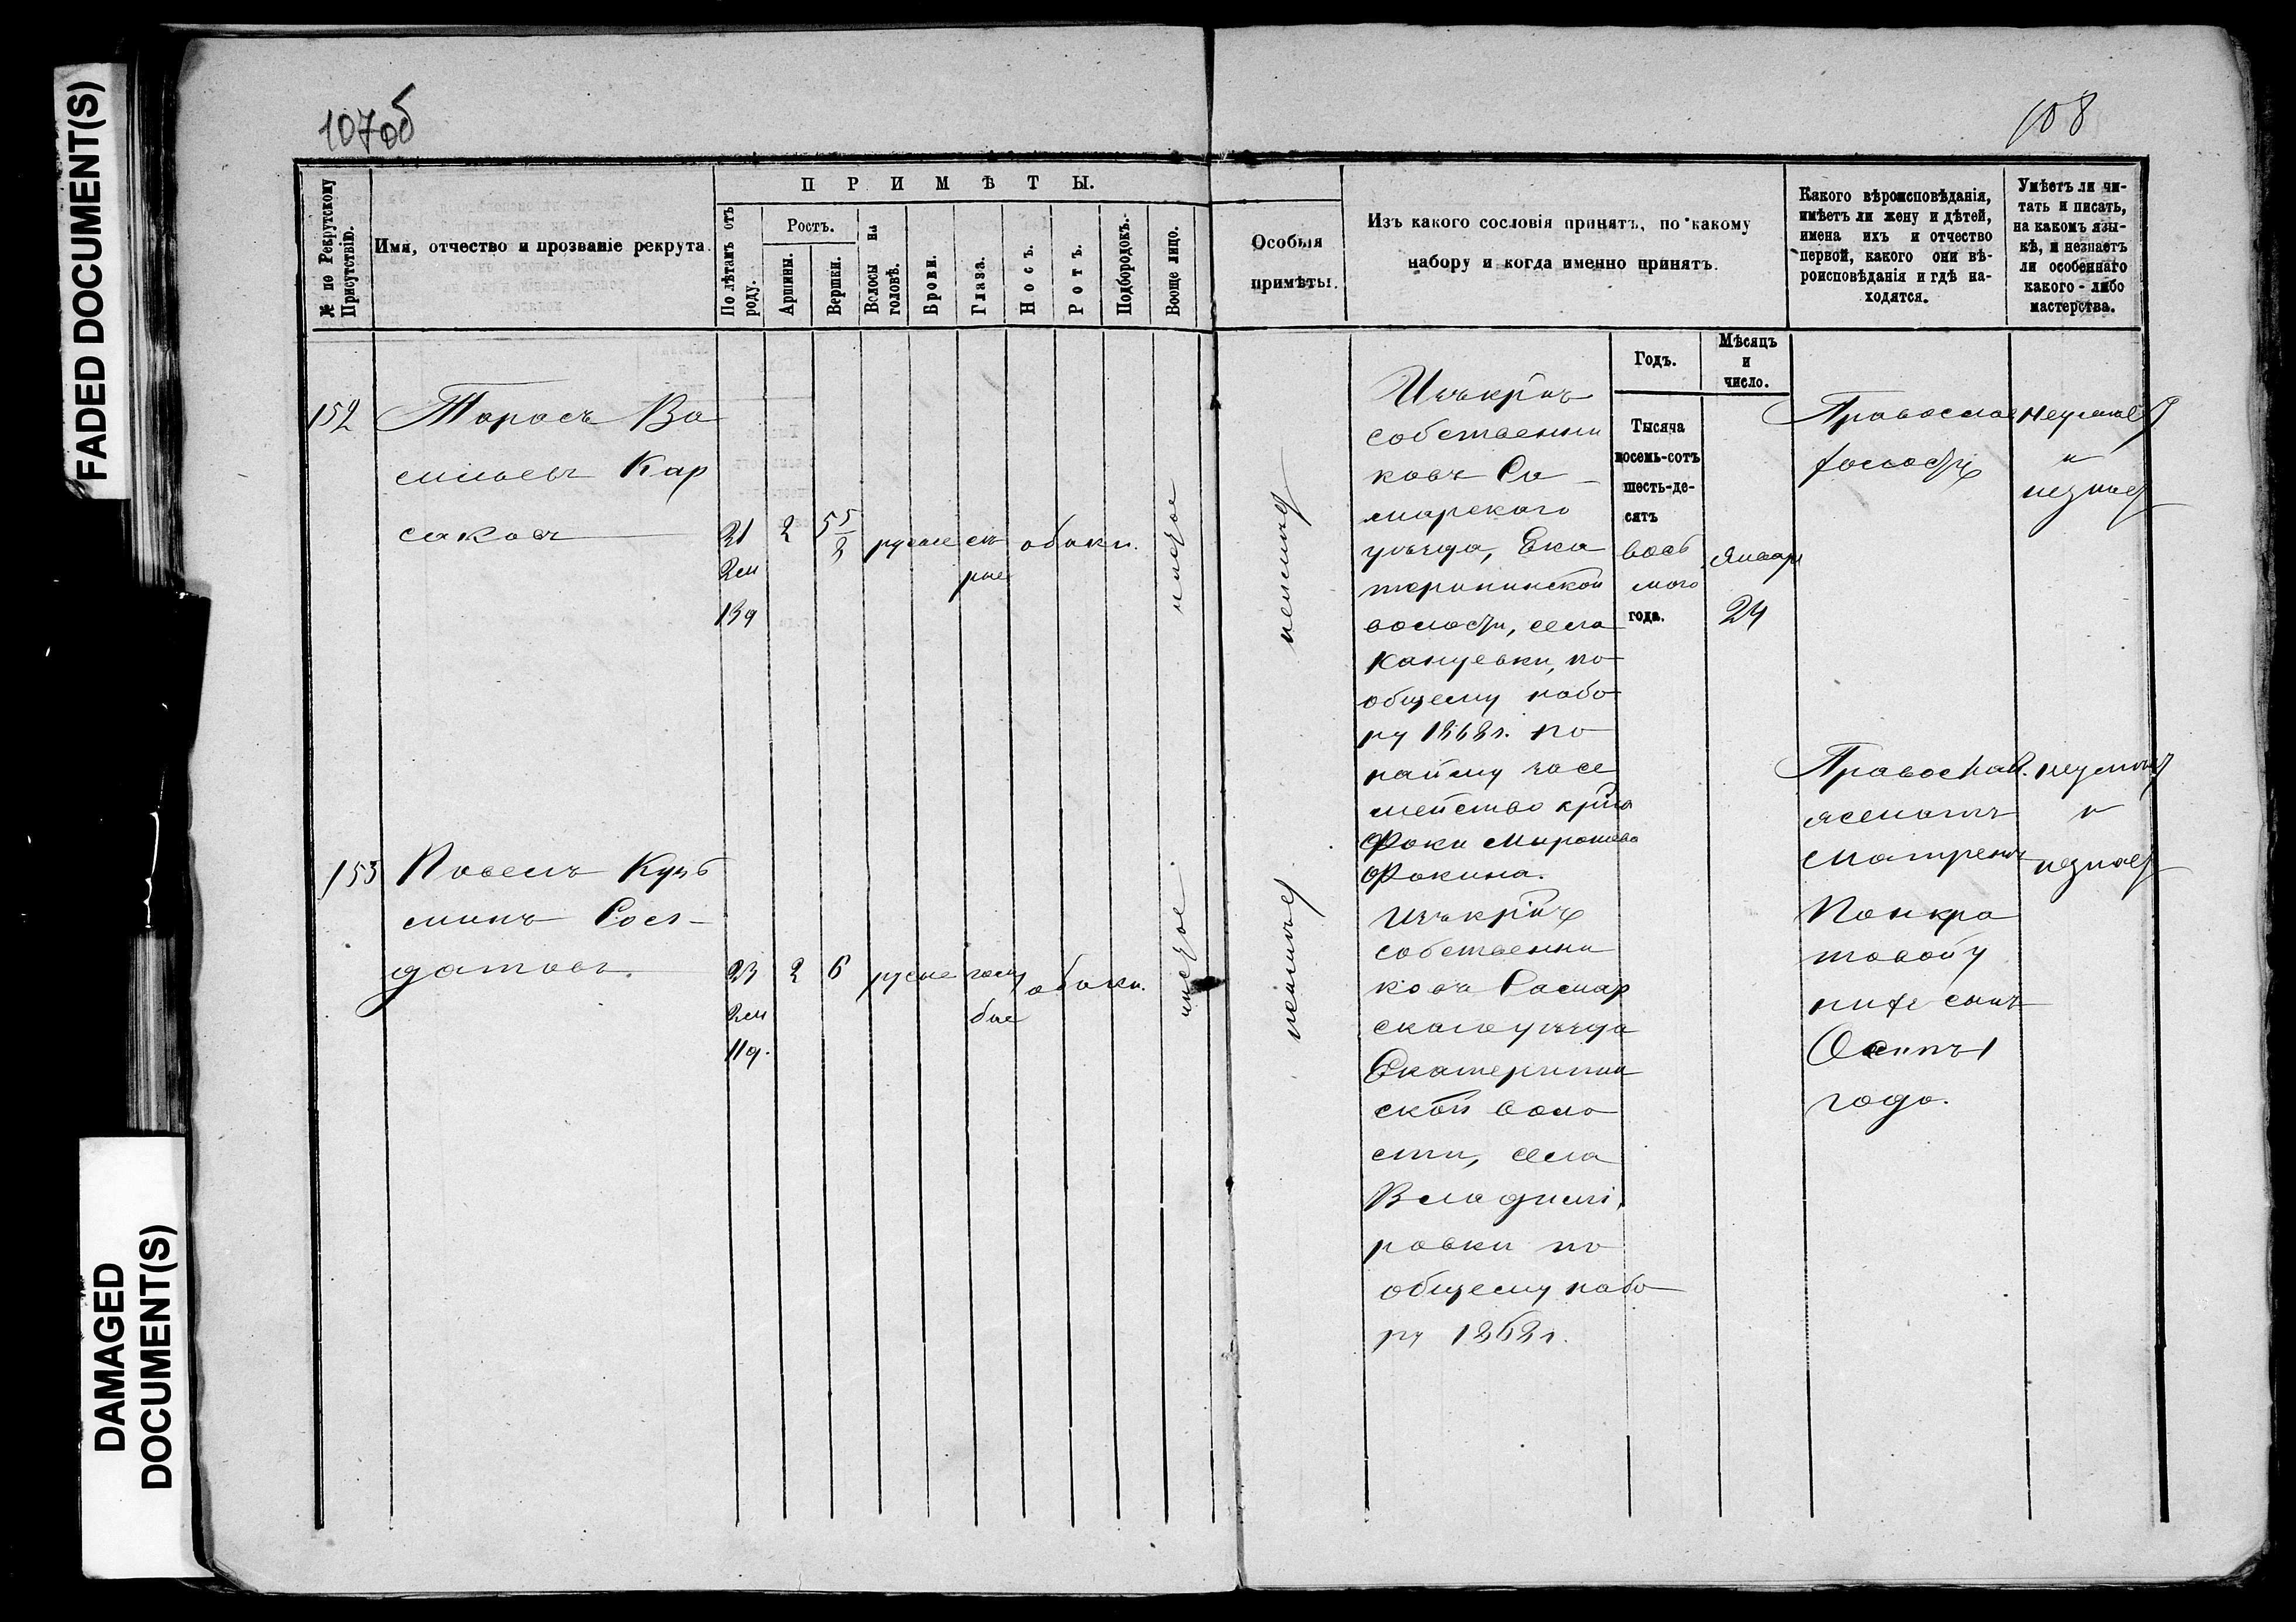 FADED DOCUMENT(S)
DAMAGED
DOCUMENT(S)
107об
108
№ по Рекрутскому
Присутствію.
Имя, отчество и прозваніе рекрута.
ПРИМѢТЫ.
По лѣтамъ отъ
роду.
Ростъ.
Аршины.
Вершки.
Волосы на
головѣ.
Брови.
Глаза.
Носъ.
Ротъ.
Подбородокъ.
Вооще лицо.
Особыя
примѣты.
Изъ какого сословія принятъ, по какому
набору и когда именно принятъ.
Какого вѣроисповѣданія,
имѣетъ ли жену и дѣтей,
имена ихъ и отчество
первой, какого они вѣ-
роисповѣданія и гдѣ на-
ходятся.
Умѣетъ ли чи-
тать и писать,
на какомъ язы-
кѣ, и незнаетъ
ли особеннаго
какого - либо
мастерства.
Годъ.
Мѣсяцъ
и
число.
152
Тарасъ Ва
сильевъ Кар
саковъ
21
2м
13д
2
5 5/8
русые
сѣ
рые
обыкн.
чистое
неимѣет
Изъ крнъ
собственни
ковъ Са
марскаго
уѣзда, Ека
терининской
волости, села
Кануевки, по
общему набо
ру 1868г. по
найму за се
мейство крна
Фоки Миронова
Фокина.
Тысяча
восемь-сотъ
шесть-де-
сятъ
вось
мого
года.
Январ
24
Православ
холостъ
неумѣет
и
незнает
153
Павелъ Кузь
минъ Сол-
датовъ.
23
2м
11д.
2
6
русые
голу
бые
обыкн.
чистое.
неимѣет
Изъ крнъ
собственни
ковъ Самар
скаго уѣзда
Екатеринин
ской воло
сти, села
Владимі
ровки по
общему набо
ру 1868г.
Православ.
женатъ
Матрена
Панкра
товой у
нихъ сынъ
Осипъ 1
года.
неумѣет
и
незнает